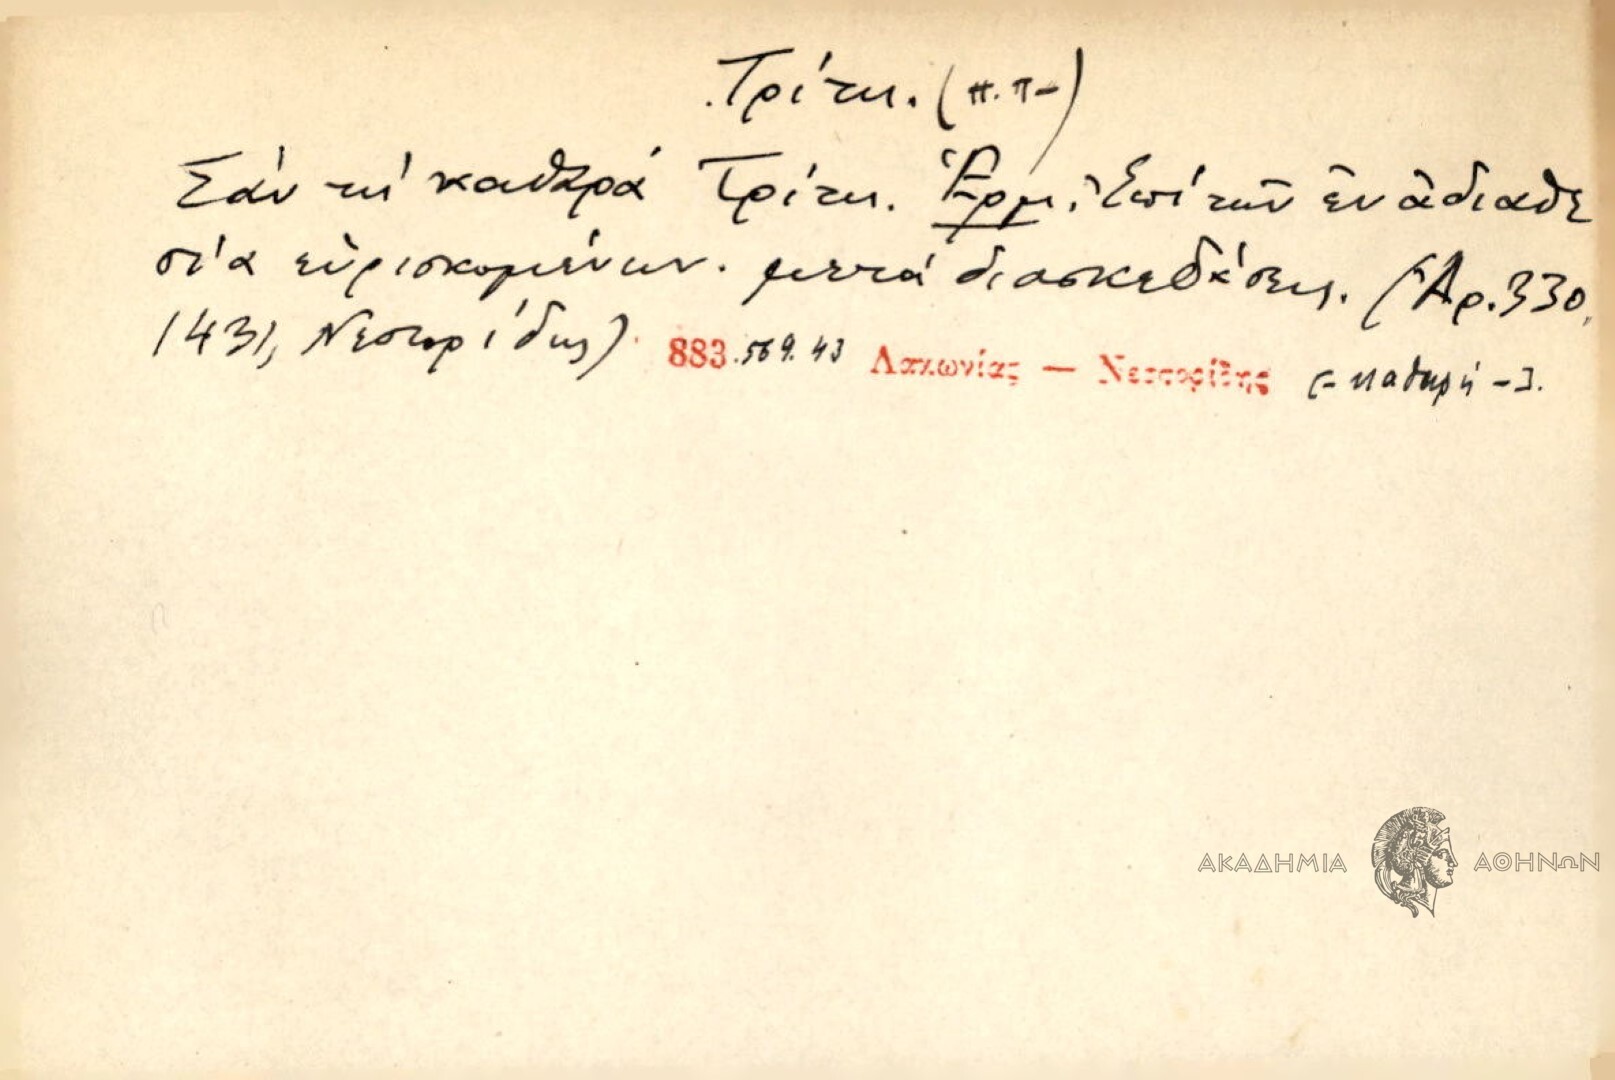 Τρίτη. (π.π–)
Σάν τή καθερά Τρίτη. Ἑρμ. Ἐπί τῶν ἐν ἀδιαθε
σίᾳ εὑρισκομένων μετά διασκεδάσεις. (Ἀρ. 330,
1431, Νεστορίδης) 883.569.43 Λακωνίας — Νεστορίδης (– καθαρή –).
ΑΚΑΔΗΜΙΑ ΑΘΗΝΩΝ